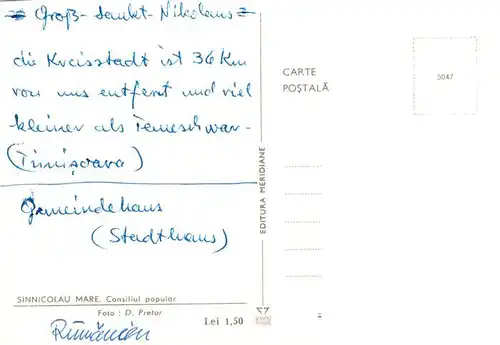 = Groß-Sankt-Nikolaus =
die Kreisstadt ist 36 Km
von uns entfernt und viel
kleiner als Temeschwar-
(Timișoara)
Gemeindehaus
(Stadthaus)
SINNICOLAU MARE, Consiliul popular
Foto : D. Pretor
Lei 1,50
Rumänien
EDITURA MERIDIANE
CARTE
POȘTALĂ
5047